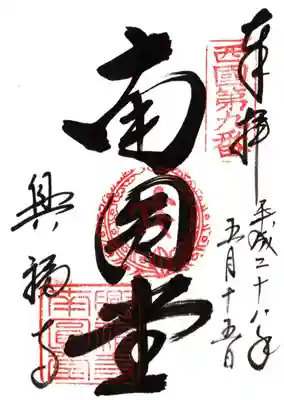 奉拝
西國第九番
平成二十八年
五月十五日
南円堂
興福寺